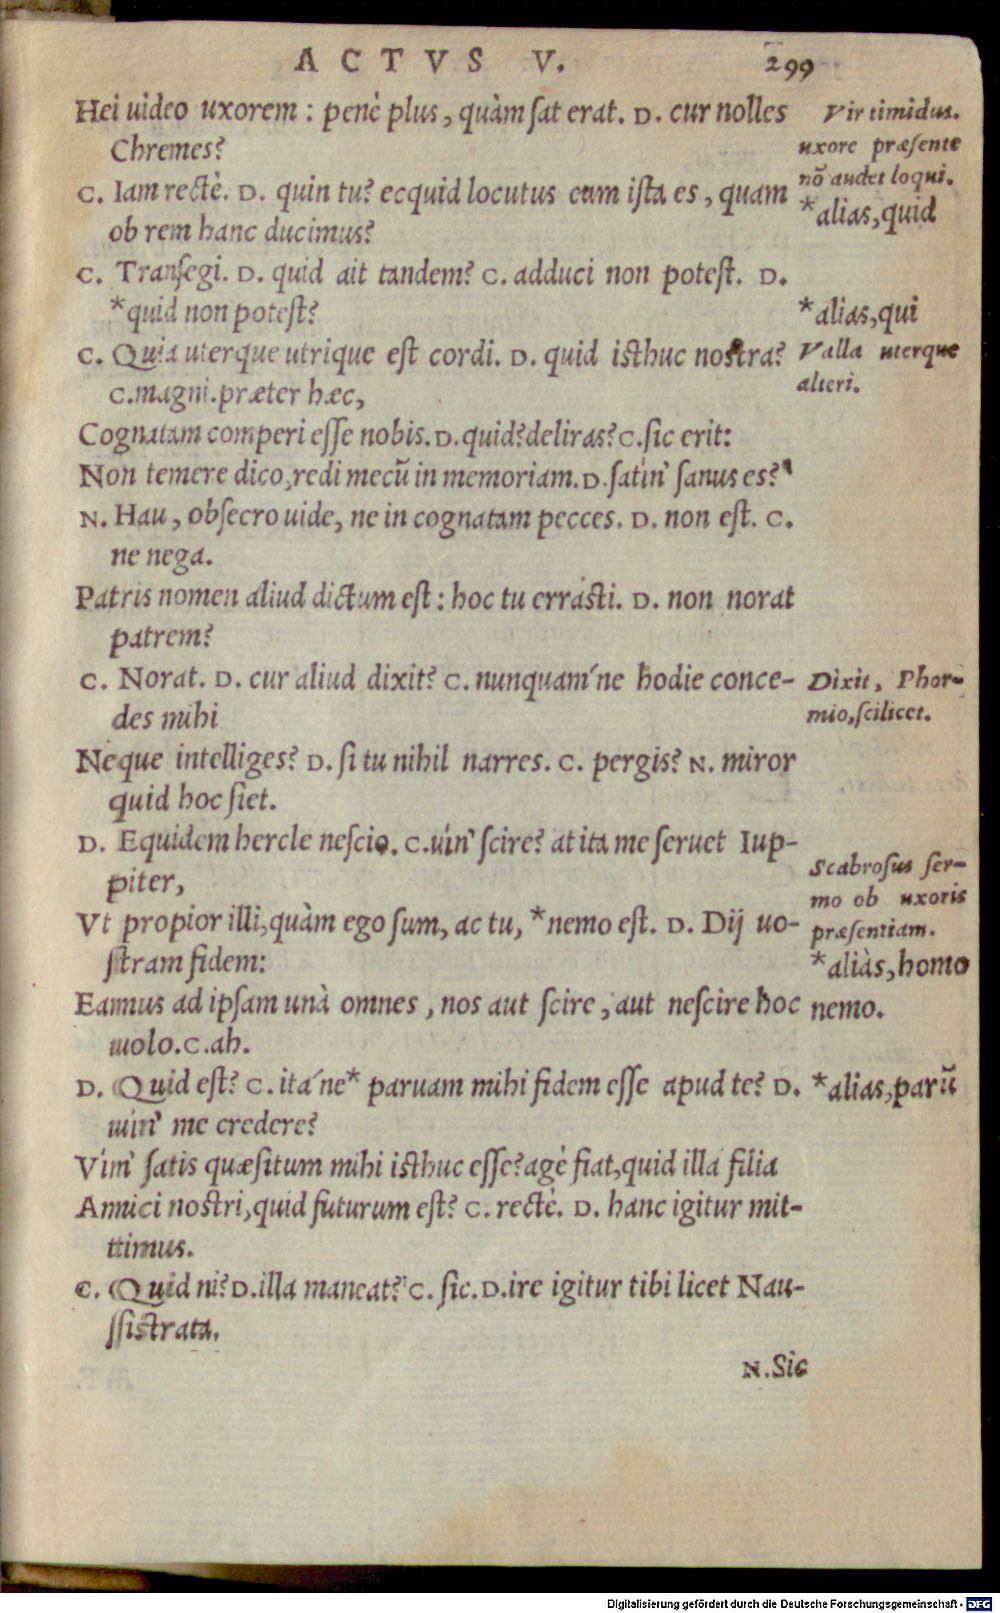 ACTVS V. 299
Hei uideo uxorem : penè plus, quàm ſat erat. D. cur nolles
Chremes?
C. Iam rectè. D. quin tu? ecquid locutus cum iſta es, quam
ob rem hanc ducimus?
C. Tranſegi. D. quid ait tandem? C. adduci non poteſt. D.
*quid non poteſt?
C. Quia uterque utrique eſt cordi. D. quid iſthuc noſtra?
C. magni. præter hæc,
Cognatam comperi eſſe nobis. D. quid? deliras? C. ſic erit:
Non temere dico, redi mecū in memoriam. D. ſatin' ſanus es?
N. Hau, obſecro uide, ne in cognatam pecces. D. non eſt. C.
ne nega.
Patris nomen aliud dictum eſt : hoc tu erráſti. D. non norat
patrem?
C. Norat. D. cur aliud dixit? C. nunquam'ne hodie conce-
des mihi
Neque intelliges? D. ſi tu nihil narres. C. pergis? N. miror
quid hoc ſiet.
D. Equidem hercle neſcio. C. uin' ſcire? at ita me ſeruet Iup-
piter,
Vt propior illi, quàm ego ſum, ac tu, *nemo eſt. D. Dij uo-
ſtram fidem:
Eamus ad ipſam unà omnes, nos aut ſcire, aut neſcire hoc
uolo. C. ah.
D. Quid eſt? C. ita'ne* paruam mihi fidem eſſe apud te? D.
uin' me credere?
Vin' ſatis quæſitum mihi iſthuc eſſe? agè fiat, quid illa filia
Amici noſtri, quid futurum eſt? C. rectè. D. hanc igitur mit-
timus.
C. Quid ni? D. illa maneat? C. ſic. D. ire igitur tibi licet Nau-
ſſiſtrata.
N. Sic
Vir timidus.
uxore præſente
nō audet loqui.
*alias, quid
*alias, qui
Valla uterque
alteri.
Dixit, Phor-
mio, ſcilicet.
Scabroſus ſer-
mo ob uxoris
præſentiam.
*aliàs, homo
nemo.
*alias, parū
Digitalisierung gefördert durch die Deutsche Forschungsgemeinschaft - DFG